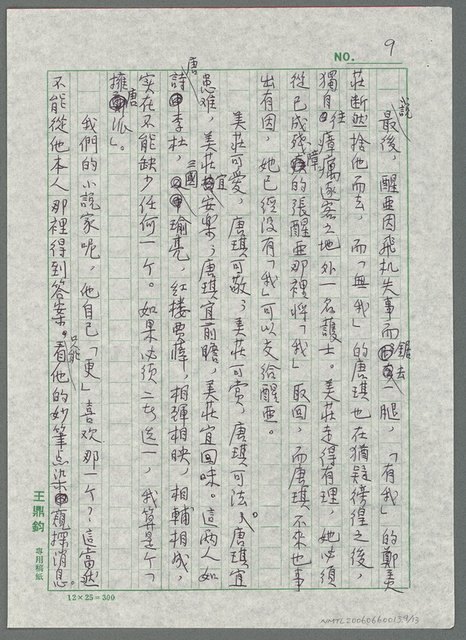 NO. 9
說最後，醒亞因飛机失事而鋸去一腿，「有我」的鄭美
莊断然捨他而去，而「無我」的唐琪也在猶疑徬徨之後，
獨自往瘴癘逐客之地外一名護士。美莊走得有理，她必須
從已成殘障的張醒亞那裡將「我」取回，而唐琪不來也事
出有因，她已經没有「我」可以交給醒亞。
美莊可愛，唐琪可敬；美莊可賞，唐琪可法；唐琪宜
患难，美莊宜安樂；唐琪宜前瞻，美莊宜回味。這両人如
唐詩李杜，三國瑜亮，紅楼
，相輝相映，相輔相成，
实在不能缺少任何一个。如果必须二者选一，我算是个「
擁唐派」。
我們的小說家呢，他自己「更」喜欢那一个？這當然
不能從他本人那裡得到答案。只能看他的妙筆点染窺探消息。
王鼎鈞專用稿紙
12×25＝300
NMTL20060660013 9/13